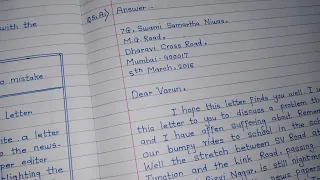 with the
o mistake
Letter
ite a letter
to the news-
per editor
hlighting the
Q5.A) Answer -
7G, Swami Samartha Niwas,
M.G. Road,
Dharavi Cross Road,
Mumbai - 400017
5th March, 2016
Dear Varun,
I hope this letter finds you well. I w
this letter to you to discuss a problem th
and I have often suffering about. Remem
our bumpy rides to school in the
Well the stretch between SV Road
Junction and the Link Road, passing
Rizvi Nagar, is still nightma
news papers